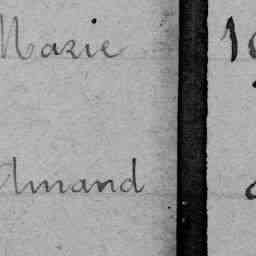 Marie
Amand